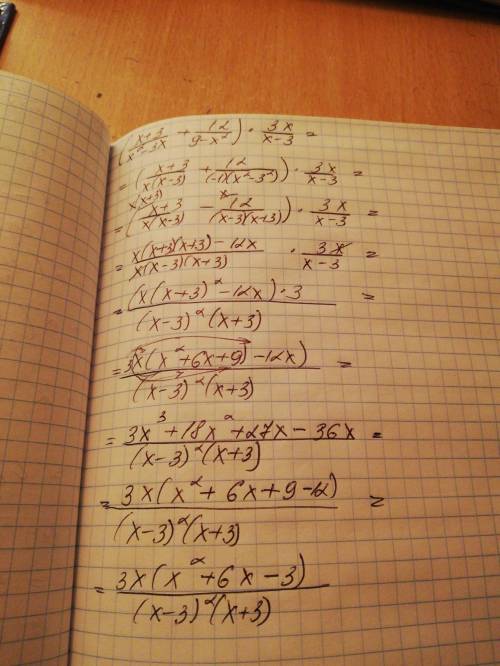 (x+3/x²-3x + 12/9-x²) · 3x/x-3 =
= (x+3/x(x-3) + 12/(-1)(x²-3²)) · 3x/x-3 =
= (x(x+3) x+3/x(x-3) - x 12/(x-3)(x+3)) · 3x/x-3 =
= x(x+3)(x+3)-12x/x(x-3)(x+3) · 3x/x-3 =
= (x(x+3)²-12x)·3/(x-3)²(x+3) =
= 3x(x²+6x+9)-12x)/(x-3)²(x+3) =
= 3x³+18x²+27x-36x/(x-3)²(x+3) =
= 3x(x²+6x+9-12)/(x-3)²(x+3) =
= 3x(x²+6x-3)/(x-3)²(x+3)